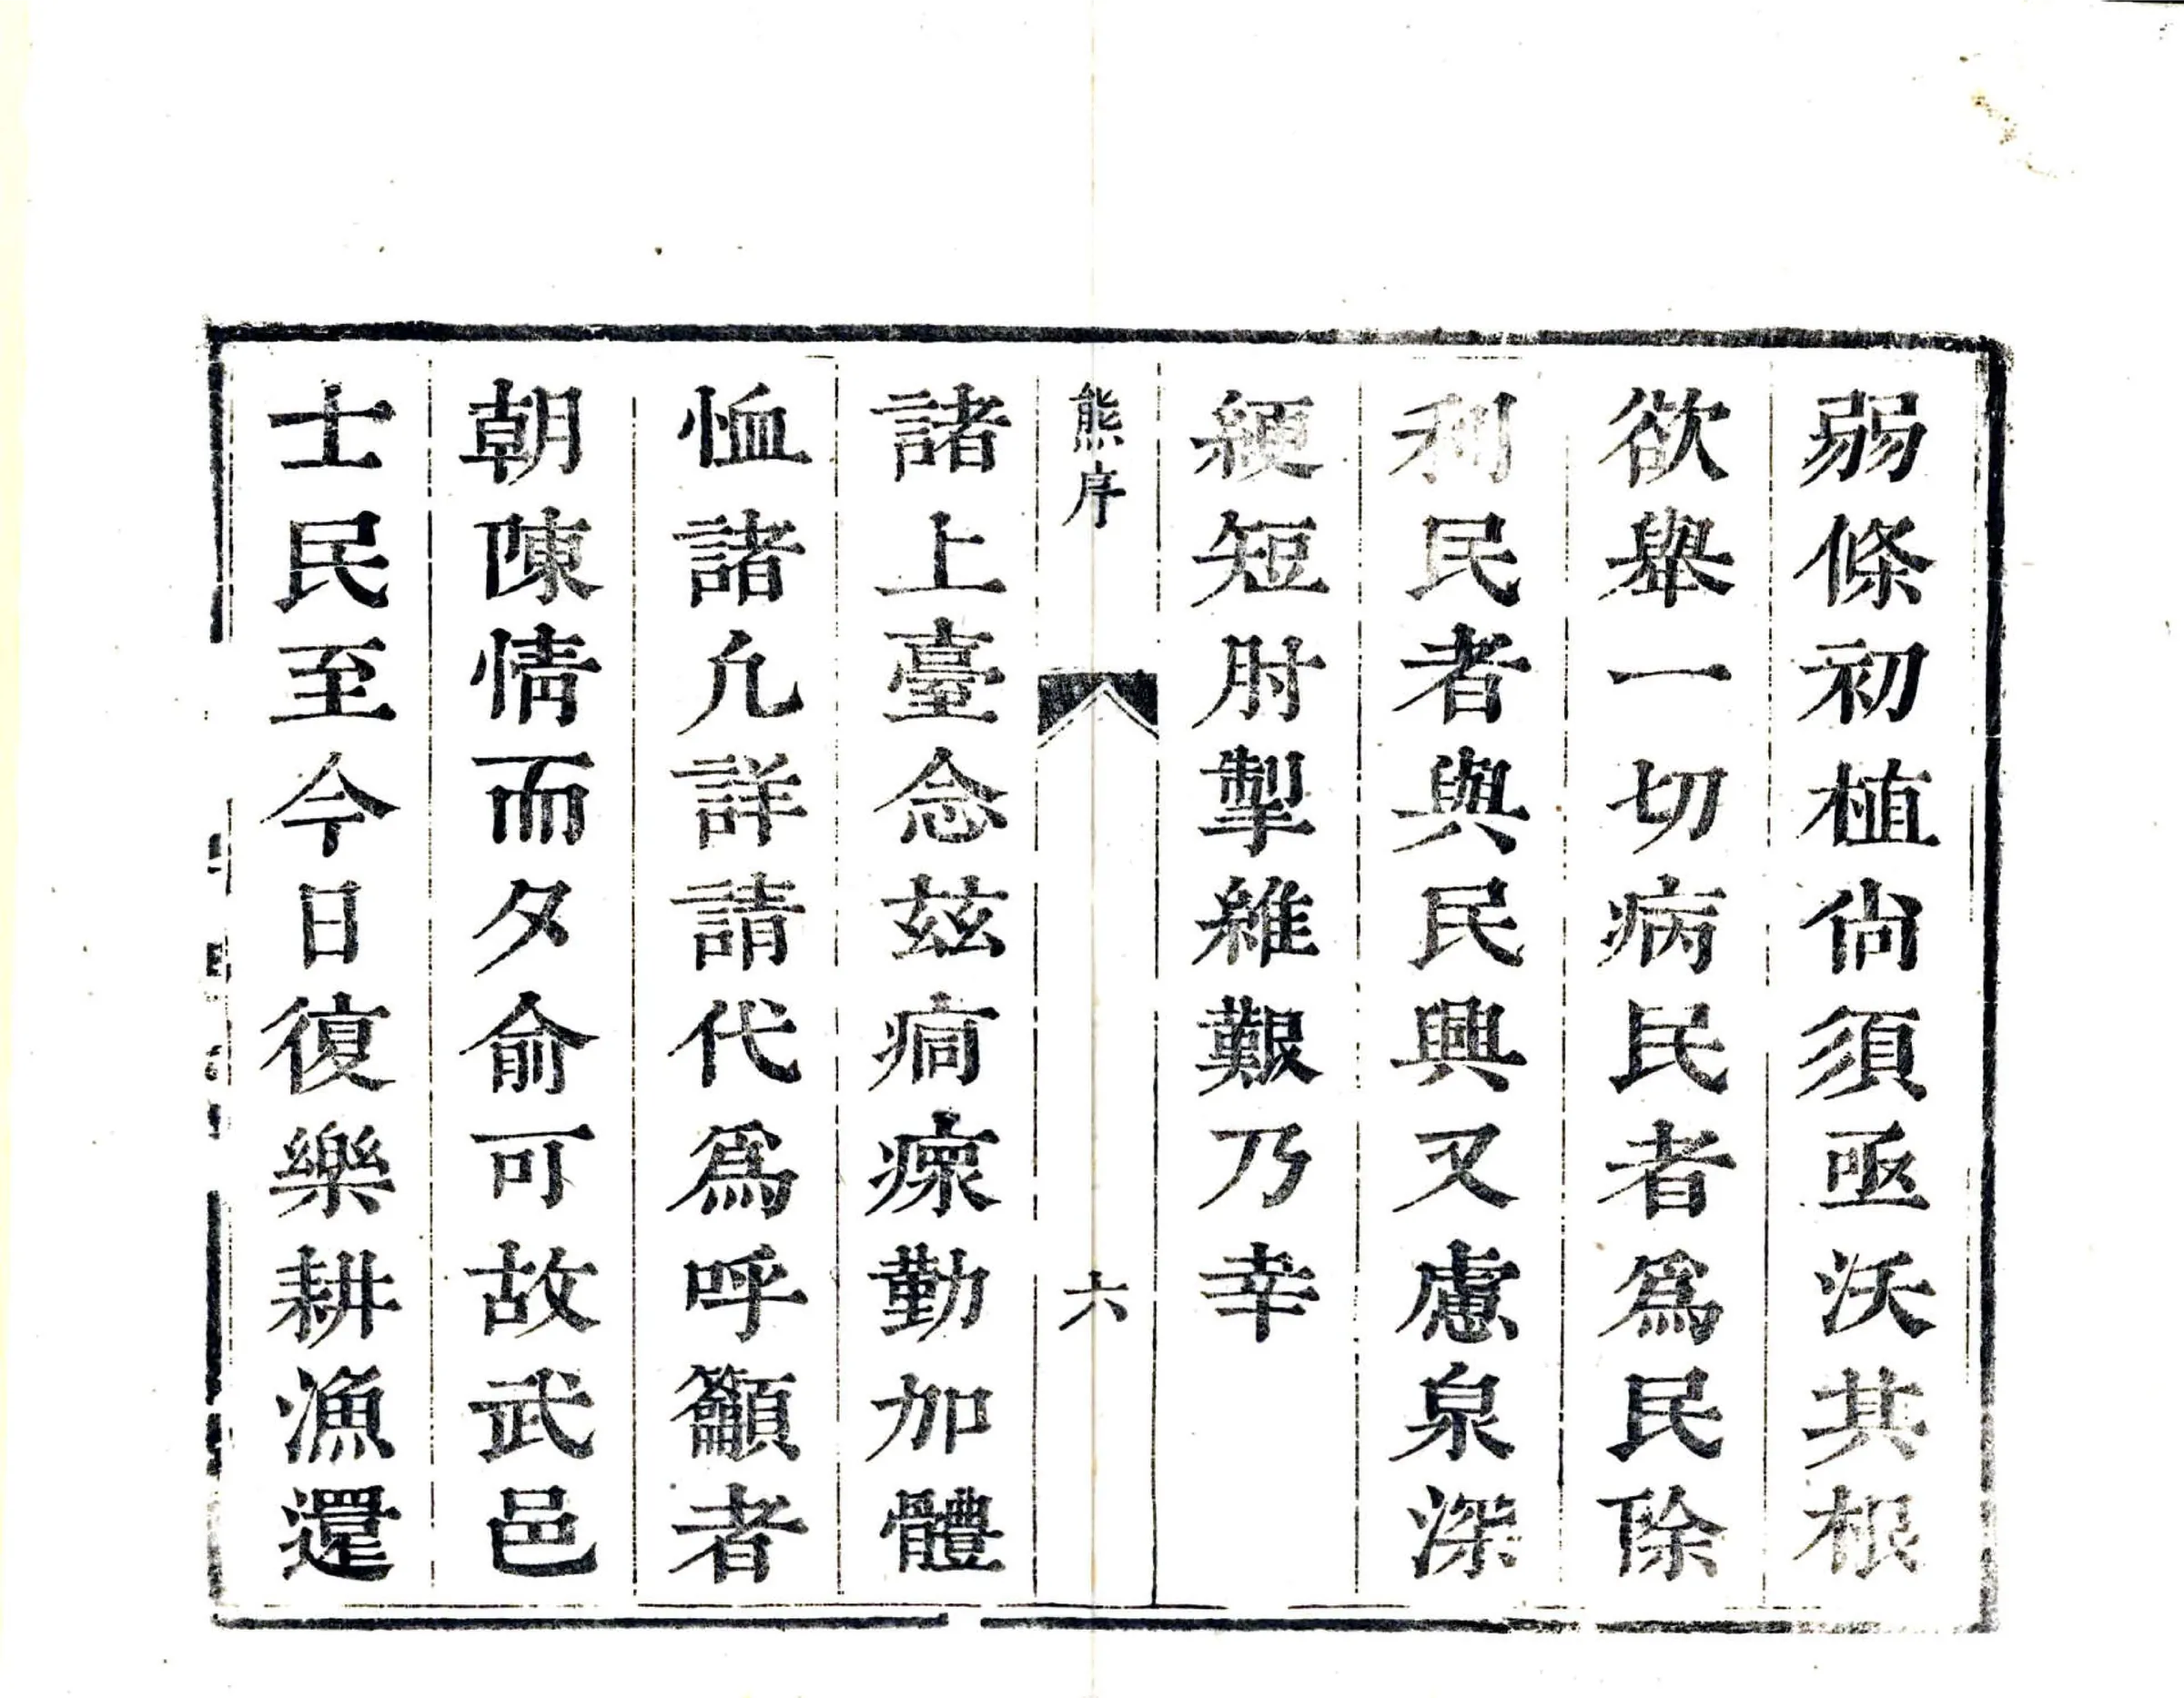 弱條初植尙須亟沃其根
欲舉一切病民者爲民除
利民者與民興又慮泉深
綆短肘掣維艱乃幸
熊序
六
諸上臺念茲痌瘝勤加體
恤諸凣詳請代爲呼籲者
朝陳情而夕俞可故武邑
士民至今日復樂耕漁還